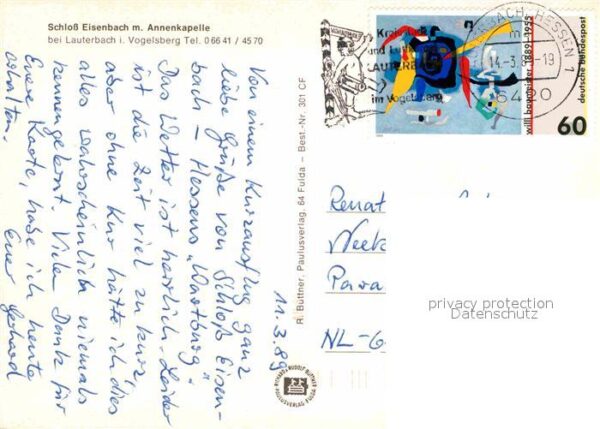 Schloß Eisenbach m. Annenkapelle
bei Lauterbach i. Vogelsberg Tel. 0 66 41 / 45 70
11.3.89
Von einem Kurzausflug ganz
liebe Grüße von Schloß Eisen-
bach – Hessens „Wartburg“
Das Wetter ist herrlich. Leider
ist die Zeit viel zu kurz,
aber ohne Kur hätte ich dies
alles wahrscheinlich niemals
kennengelernt. Vielen Dank für
Eure Karte, habe ich heute
erhalten.
Euer Gerhard
R. Büttner, Paulusverlag, 64 Fulda – Best.-Nr. 301 CF
RICHARD + RUDOLF BÜTTNER
PAULUSVERLAG FULDA
Kreisstadt
und Luft
LAUTERBACH
im Vogelsberg
BACH, HESSEN 1
14-3. -19
6420
m
willi baumeister 1889-1955
deutsche bundespost
60
Renat
Para
NL-6
privacy protection
Datenschutz